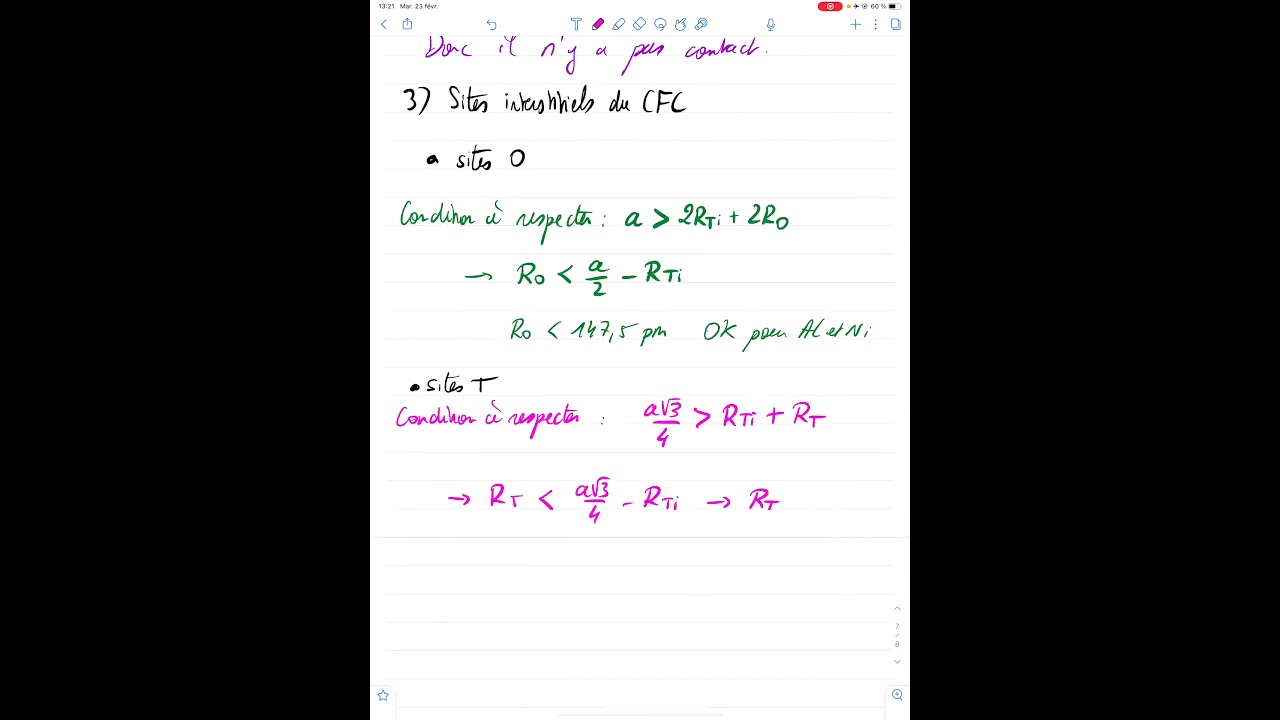 13:21 Mar. 23 févr. 60 %
Donc il n'y a pas contact.
3) Sites interstitiels du CFC
• sites O
Condition à respecter : a > 2R_Ti + 2R_O
→ R_O < a/2 - R_Ti
R_O < 147,5 pm OK pour Al et Ni
• sites T
Condition à respecter : a√3/4 > R_Ti + R_T
→ R_T < a√3/4 - R_Ti → R_T
7
/
8